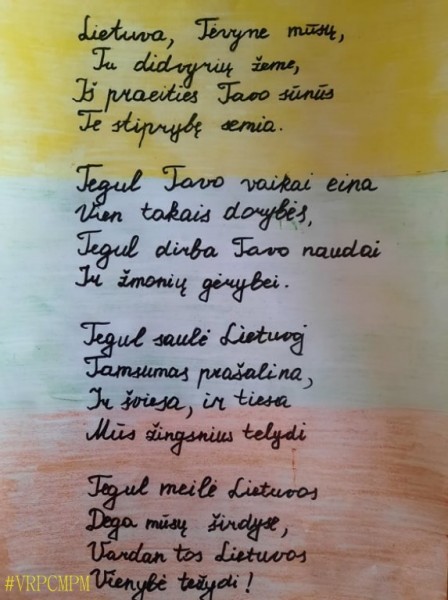 Lietuva, Tėvyne mūsų,
Tu didvyrių žeme,
Iš praeities Tavo sūnūs
Te stiprybę semia.
Tegul Tavo vaikai eina
Vien takais dorybės,
Tegul dirba Tavo naudai
Ir žmonių gėrybei.
Tegul saulė Lietuvoj
Tamsumas prašalina,
Ir šviesa, ir tiesa
Mūs žingsnius telydi
Tegul meilė Lietuvos
Dega mūsų širdyse,
Vardan tos Lietuvos
Vienybė težydi!
#VRPCMPM